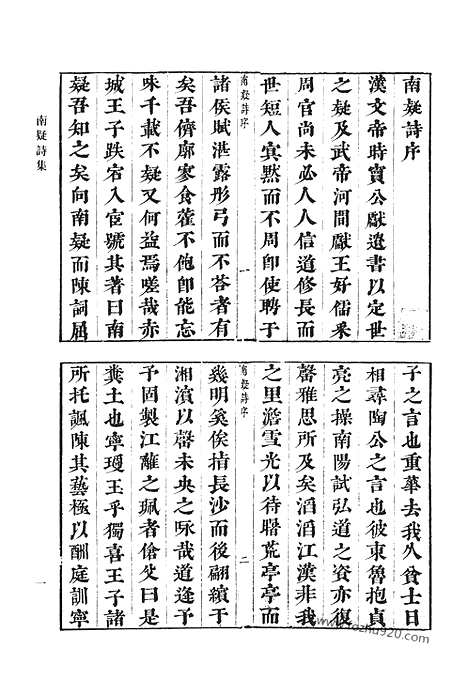 南疑詩序
漢文帝時竇公獻遺書以定世
之疑及武帝河間獻王好儒釆
周官尚未必人人信道修長而
世短人寞黙而不周卽使聘于
南疑詩序
一
諸侯賦湛露彤弓而不荅者有
矣吾儕廓寥食藿不飽卽能忘
味千載不疑又何益焉嗟哉赤
城王子跌宕入宦號其著曰南
疑吾知之矣向南疑而陳詞屈
子之言也重華去我久貧士曰
相尋陶公之言也彼東魯抱貞
亮之操南陽試弘道之資亦復
罄雅思所及矣滔滔江漢非我
之里澹雪光以待曙荒亭亭而
南疑詩序
二
幾明奚俟揹長沙而後翩繽于
湘濱以罄未央之咏哉道逢予
予固製江蘺之珮者傖父曰是
糞土也寧瓊玉乎獨喜王子諸
所托諷陳其藝極以酬庭訓寧
南疑詩集
一